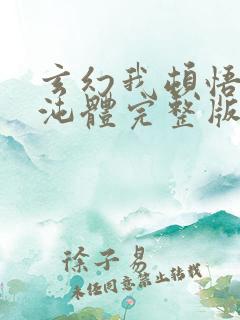 玄幻我頓悟
沌體完整版
徐子易
未經同意禁止轉載